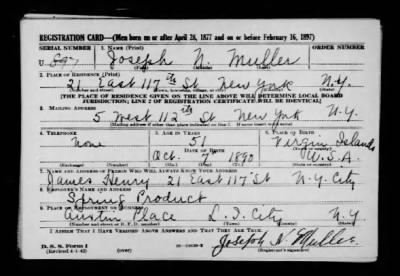 REGISTRATION CARD—(Men born on or after April 28, 1877 and on or before February 16, 1897)
SERIAL NUMBER 1. NAME (Print) ORDER NUMBER
U 897 Joseph N. Muller
(First) (Middle) (Last)
2. PLACE OF RESIDENCE (Print)
21 East 117th St New York N.Y.
[THE PLACE OF RESIDENCE GIVEN ON THE LINE ABOVE WILL DETERMINE LOCAL BOARD
JURISDICTION; LINE 2 OF REGISTRATION CERTIFICATE WILL BE IDENTICAL]
3. MAILING ADDRESS
5 West 112th St New York N-Y
[Mailing address if other than place indicated on line 2. If same insert word same]
4. TELEPHONE 5. AGE IN YEARS 6. PLACE OF BIRTH
None 51 Virgin Islands
DATE OF BIRTH
Oct. 7 1890 U.S.A.
(Exchange) (Number) (Mo.) (Day) (Yr.) (State or country)
7. NAME AND ADDRESS OF PERSON WHO WILL ALWAYS KNOW YOUR ADDRESS
James Henry 21 East 117 St N-Y. City
8. EMPLOYER'S NAME AND ADDRESS
Spring Product
9. PLACE OF EMPLOYMENT OR BUSINESS
Austin Place L.I. City N.Y
(Number and street or R. F. D. number) (Town) (County) (State)
I AFFIRM THAT I HAVE VERIFIED ABOVE ANSWERS AND THAT THEY ARE TRUE.
D. S. S. Form 1
(Revised 4-1-42) (over) Joseph N. Muller
(Registrant's signature)